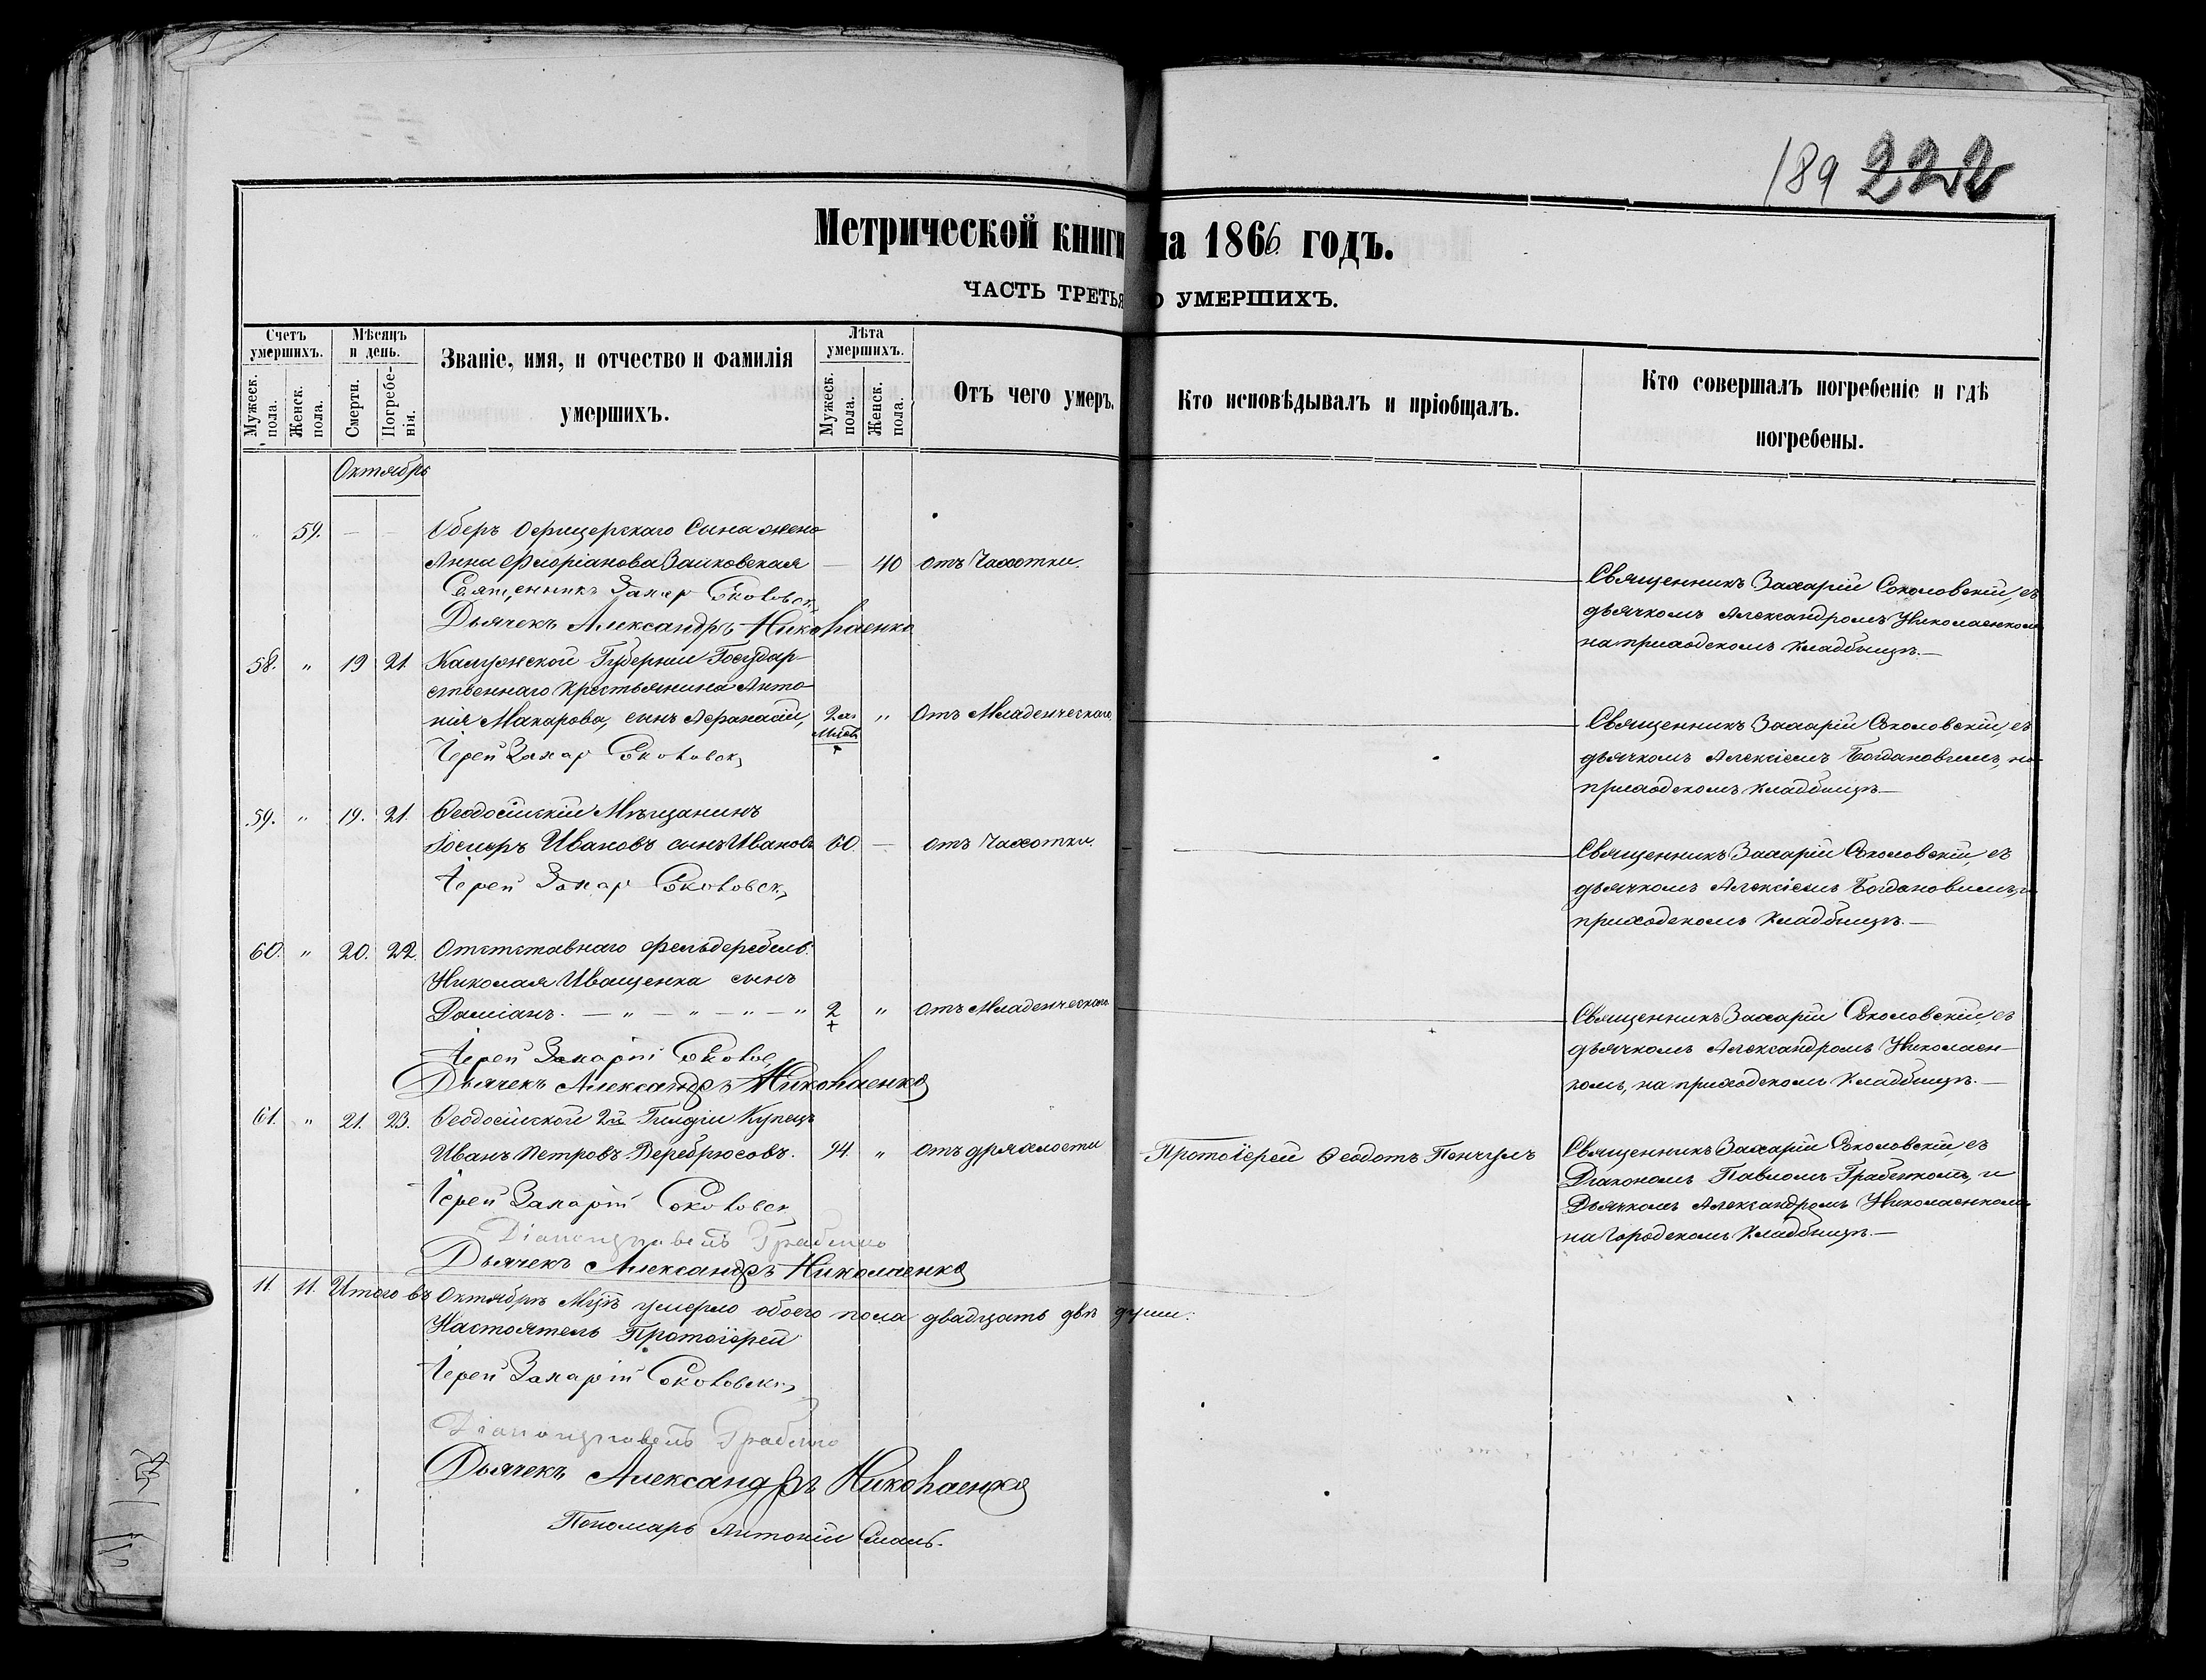 189 222
Метрической книги на 1866 годъ.
ЧАСТЬ ТРЕТЬЯ О УМЕРШИХЪ.
Счетъ умершихъ.
Мужеск. пола.
Женск. пола.
Мѣсяцъ и день.
Смерти.
Погребенія.
Званіе, имя, и отчество и фамилія умершихъ.
Лѣта умершихъ.
Мужеск. пола.
Женск. пола.
Отъ чего умеръ.
Кто исповѣдывалъ и пріобщалъ.
Кто совершалъ погребеніе и гдѣ погребены.
Октябрь
„ 59. — — Оберъ Офицерскаго Сына жена
Анна Флоріанова Зайковская — 40 отъ Чахотки.
Священникъ Захарій Соколовскій, съ
дьячкомъ Александромъ Николаенкомъ
на приходскомъ кладбищѣ.—
Священникъ Захар Соколовск
Дьячекъ Александръ Николаенко
58. „ 19 21. Калужской Губерніи Государ-
ственнаго Крестьянина Анто-
нія Макарова, сынъ Афанасій, 2хъ мѣсяц „ Отъ Младенческаго,
Священникъ Захарій Соколовскій, съ
дьячкомъ Алексіемъ Богдановимъ, на
приходскомъ кладбищѣ—
Іерей Захар Соколовск
59. „ 19. 21. Феодосійскій Мѣщанинъ
Ивановъ сынъ Ивановъ 60. — отъ Чахотки.
Священникъ Захарій Соколовскій, съ
дьячкомъ Алексіемъ Богдановимъ, на
приходскомъ кладбищѣ.—
Іерей Захар Соколовск
60. „ 20. 22. Отстставнаго фельдфебеля
Николая Иващенка сынъ
Даміанъ. — „ — „ — „ — „ 2 „ отъ Младенческаго
Священникъ Захарій Соколовскій, съ
дьячкомъ Александромъ Николаен-
комъ, на приходскомъ кладбищѣ.—
Іерей Захарій Соколов
Дьячекъ Александръ Николаенко
61. „ 21. 23. Феодосійской 2й Гильдіи Купецъ
Иванъ Петровъ Деребрюсовъ. 94. „ отъ дряхлости
Протоіерей Феодотъ Пенчулъ
Священникъ Захарій Соколовскій съ
Діакономъ Павломъ Грабенкомъ, и
Дьячкомъ Александромъ Николаенкомъ
на Городскомъ кладбищѣ.—
Іерей Захарій Соколовск
Діаконъ Павелъ Грабенко
Дьячекъ Александръ Николаенко
11. 11. Итого въ Октябрѣ Мцѣ умерло обоего пола двадцать двѣ души.
Настоятель Протоіерей
Іерей Захарій Соколовски
Діаконъ Павелъ Грабенко
Дьячекъ Александръ Николаенко
Пономарь Антоній